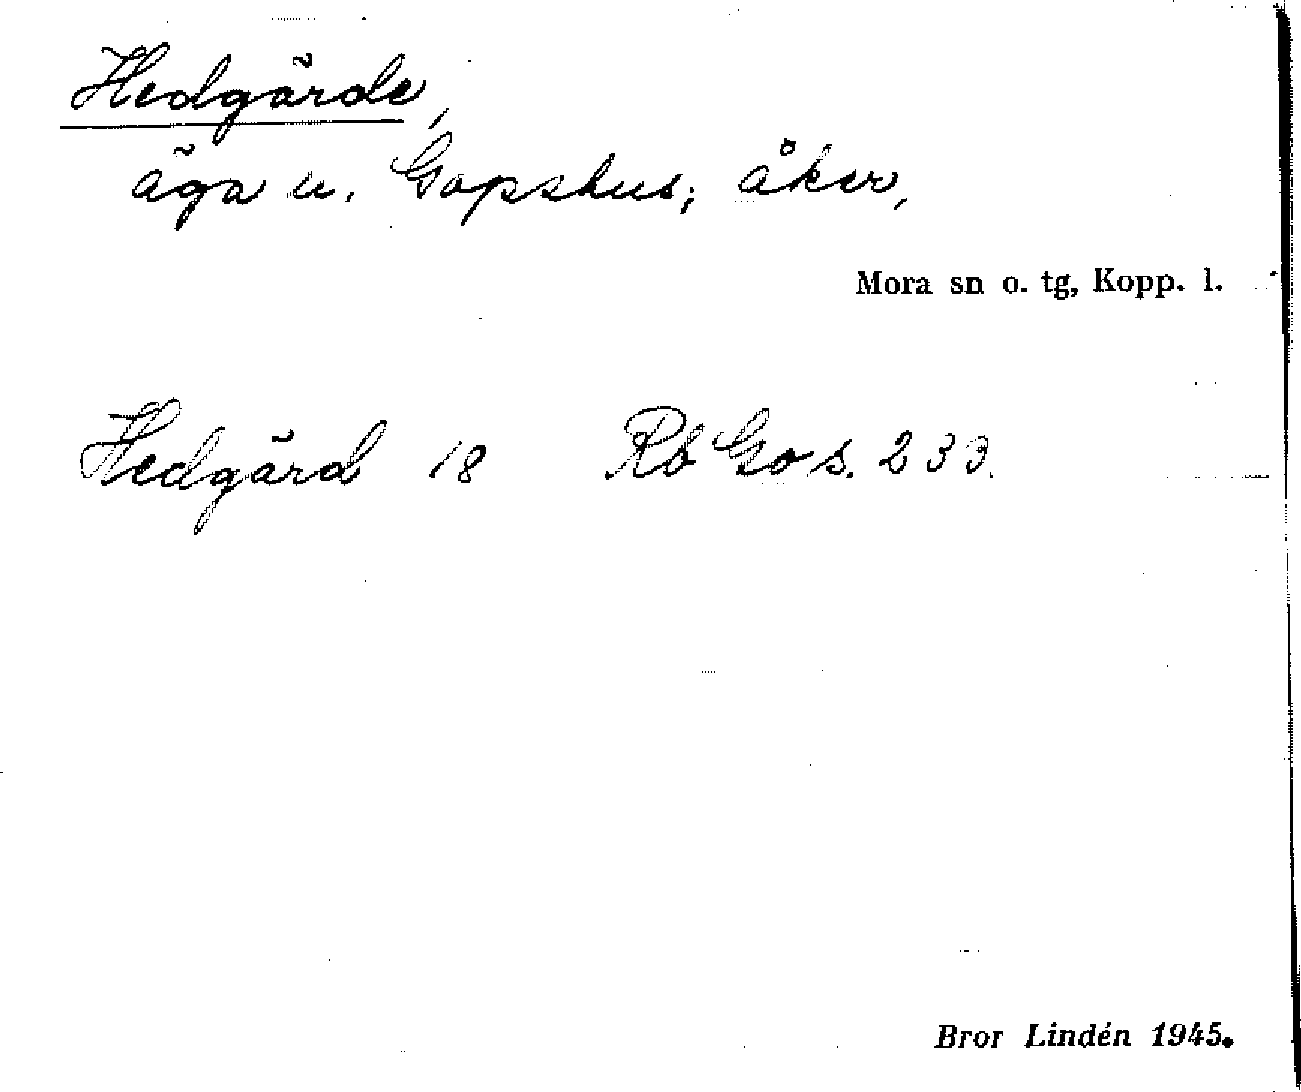 Hedgärde,
äga u. Gopshus; åker,
Mora sn o. tg, Kopp. l.
Hedgärd 18 Rb Go s. 233.
Bror Lindén 1945.